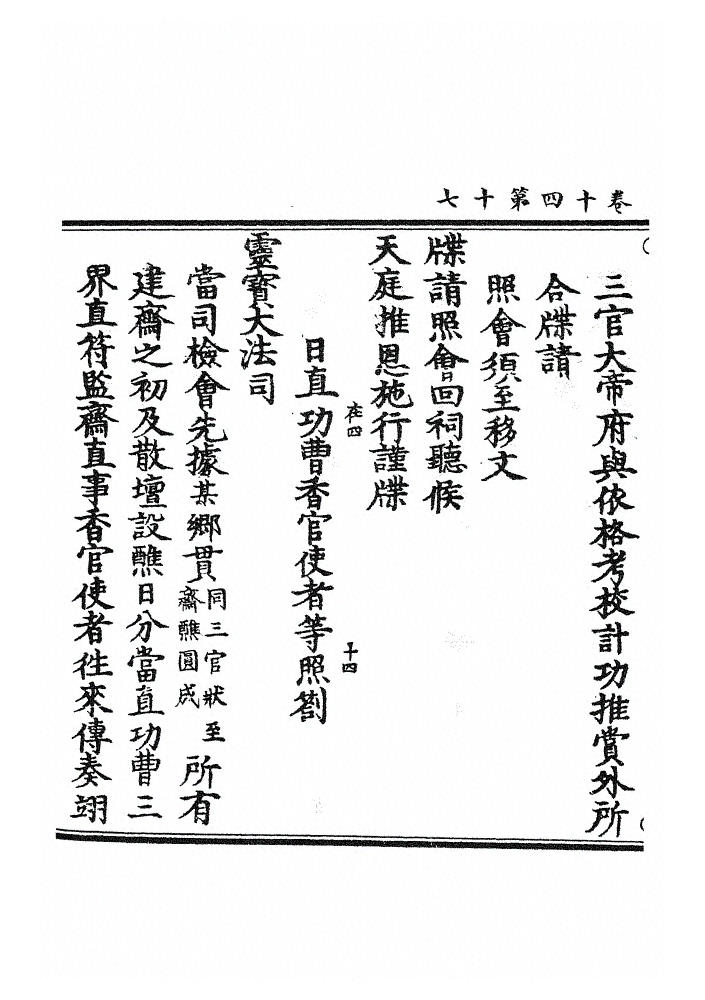 卷十四第十七
三官大帝府與依格考校計功推賞外所
合牒請
照會須至移文
牒請照會回祠聽候
天庭推恩施行謹牒
在四
十四
日直功曹香官使者等照劄
靈寶大法司
當司檢會先據某鄉貫同三官狀至齋醮圓成所有
建齋之初及散壇設醮日分當直功曹三
界直符監齋直事香官使者徃來傳奏翊